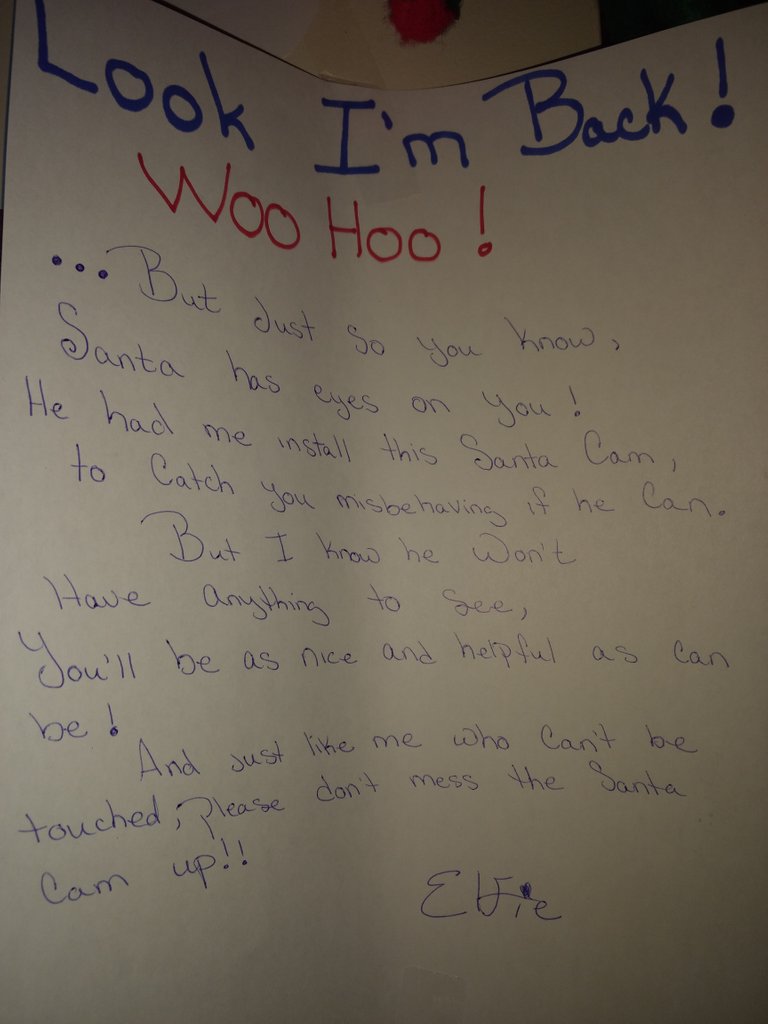 Look I'm Back!
Woo Hoo!
... But Just so you know,
Santa has eyes on you!
He had me install this Santa Cam,
to Catch you misbehaving if he Can.
But I know he Won't
Have anything to See,
You'll be as nice and helpful as can
be!
And just like me who Can't be
touched, Please don't mess the Santa
Cam up!!
Elfie